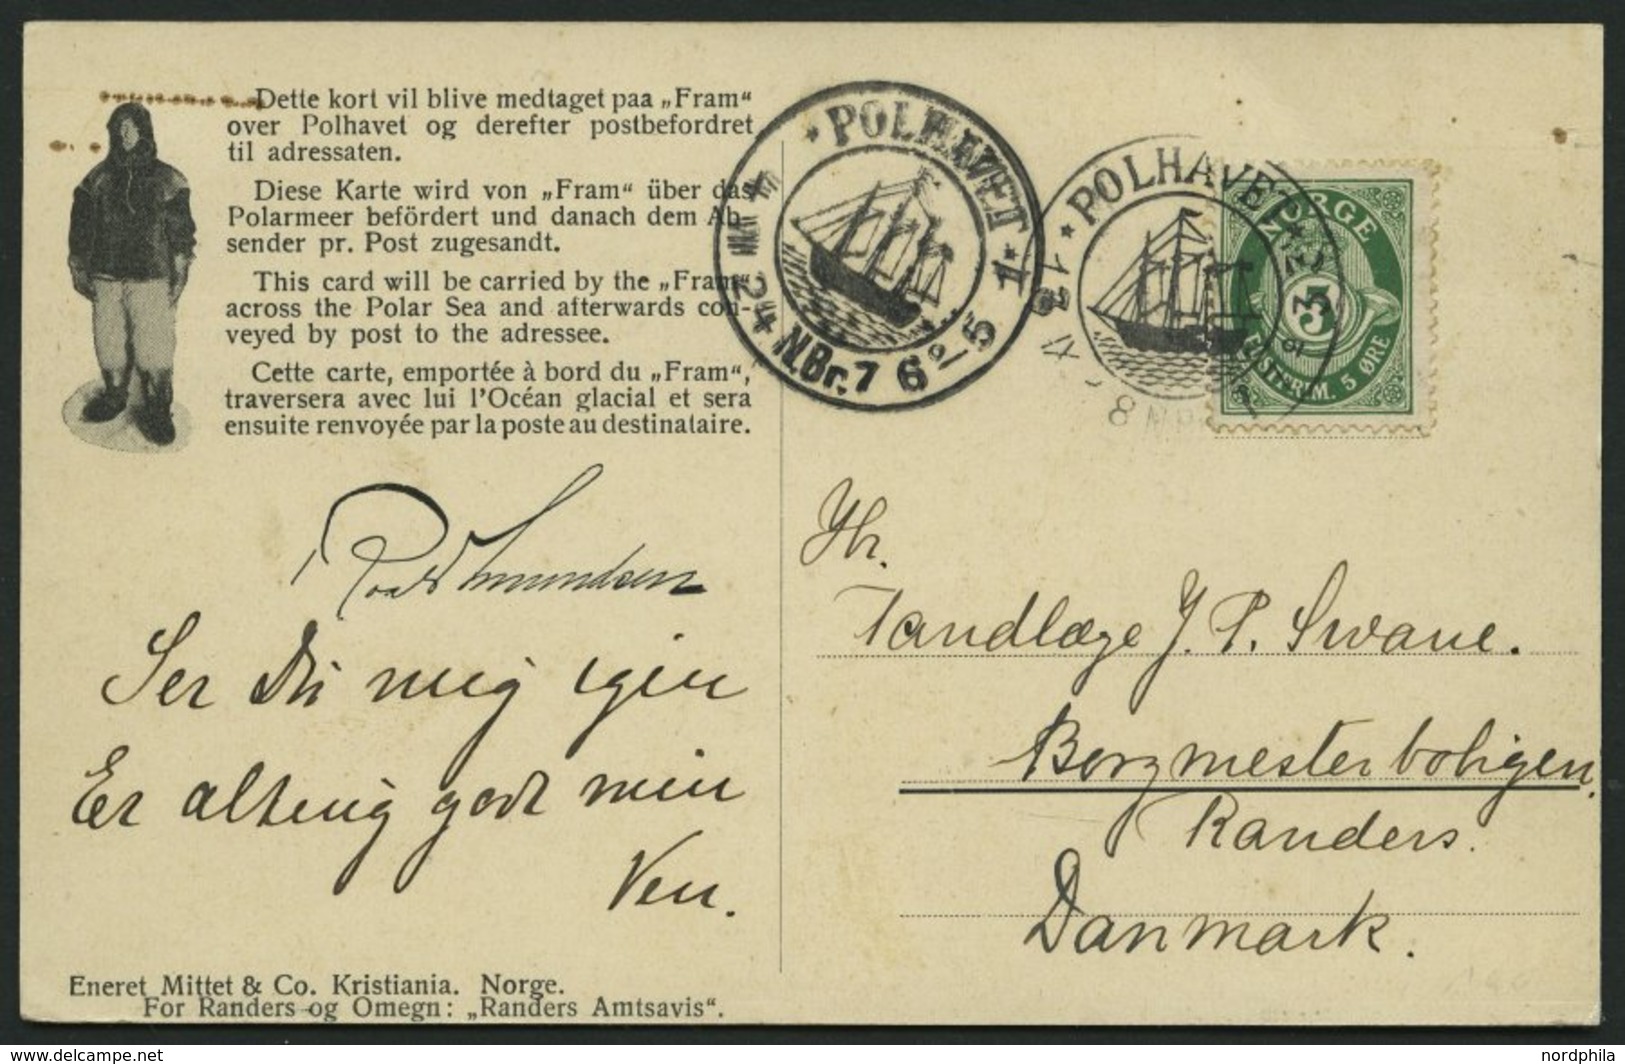 Dette kort vil blive medtaget paa „Fram“
over Polhavet og derefter postbefordret
til adressaten.
Diese Karte wird von „Fram“ über das
Polarmeer befördert und danach dem Ab-
sender pr. Post zugesandt.
This card will be carried by the „Fram“
across the Polar Sea and afterwards con-
veyed by post to the adressee.
Cette carte, emportée à bord du „Fram“,
traversera avec lui l'Océan glacial et sera
ensuite renvoyée par la poste au destinataire.
Roald Amundsen
Ser Du mig igen
Er alting godt min
Ven.
Eneret Mittet & Co. Kristiania. Norge.
For Randers og Omegn: „Randers Amtsavis“.
* POLHAVET *
24 N.Br. 76° 5 1
* POLHAVET *
NORGE
5
POSTFRIM. 5 ØRE
Hr.
Tandlæge J. P. Swane.
Borgmesterboligen.
Randers.
Danmark.
© Delcampe - www.delcampe.net
nordphila